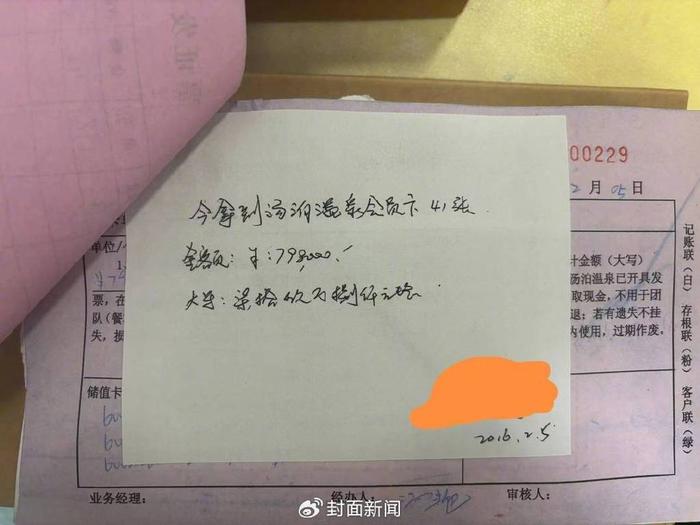 00229
2月05日
今拿到汤泊温泉会员卡41张.
金额: ¥:798,000./
大写: 柒拾玖万捌仟元整.
2016.2.5
单位/
计金额（大写）
1.
汤泊温泉已开具发
票，在
取现金，不用于团
队（餐
退；若有遗失不挂
失，损
内使用，过期作废。
储值卡
业务经理：
经办人：
审核人：
记账联（白）存根联（粉）客户联（绿）
封面新闻